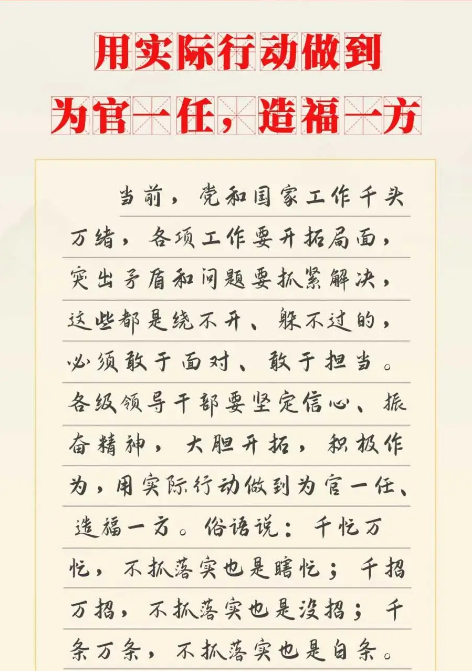 用实际行动做到
为官一任，造福一方
当前，党和国家工作千头
万绪，各项工作要开拓局面，
突出矛盾和问题要抓紧解决，
这些都是绕不开、躲不过的，
必须敢于面对、敢于担当。
各级领导干部要坚定信心、振
奋精神，大胆开拓，积极作
为，用实际行动做到为官一任、
造福一方。俗语说：千忙万
忙，不抓落实也是瞎忙；千招
万招，不抓落实也是没招；千
条万条，不抓落实也是白条。